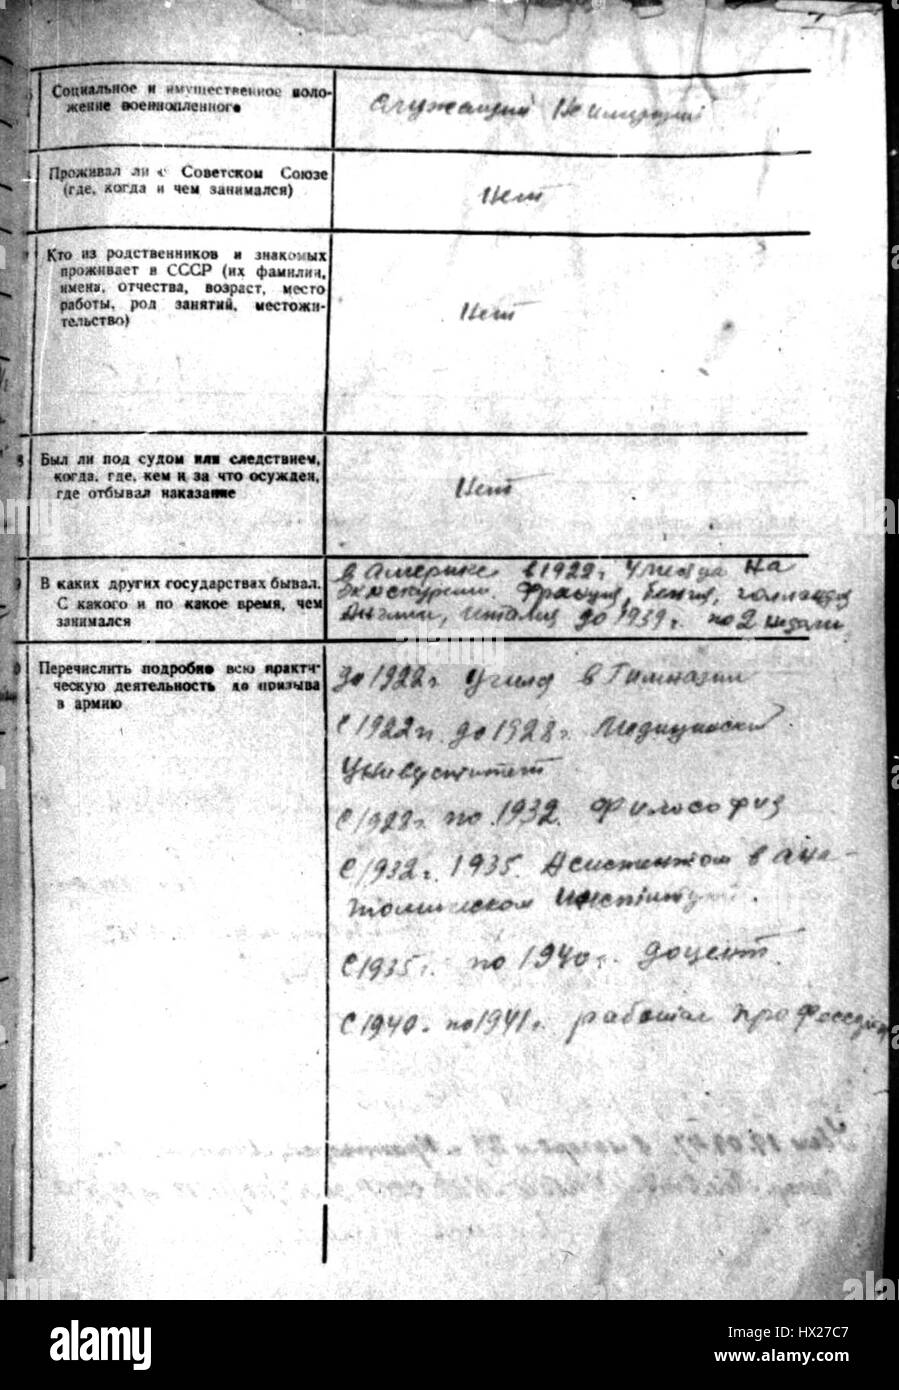 Социальное и имущественное поло-
жение военнопленного
Служащий
Проживал ли в Советском Союзе
(где, когда и чем занимался)
Нет
Кто из родственников и знакомых
проживает в СССР (их фамилии,
имена, отчества, возраст, место
работы, род занятий, местожи-
тельство)
Нет
Был ли под судом или следствием,
когда, где, кем и за что осужден,
где отбывал наказание
Нет
9 В каких других государствах бывал.
С какого и по какое время, чем
занимался
в Америке в 1922 г. 4 месяца на
экскурсии. Франция, Бельгия, Голландия
Англии, Италия до 1939 г. по 2 недели
Перечислить подробно всю практи-
ческую деятельность до призыва
в армию
До 1922 г. учился в Гимназии
С 1922 г. до 1928 г. Медицинский
Университет
С 1928 г. по 1932. Философия
С 1932 г. 1935. Асистентом в ана-
томическом Институте.
С 1935 г. по 1940 г. доцент.
С 1940 г. по 1941 г. работал профессором
alamy
a
alamy stock photo
HX27C7
www.alamy.com